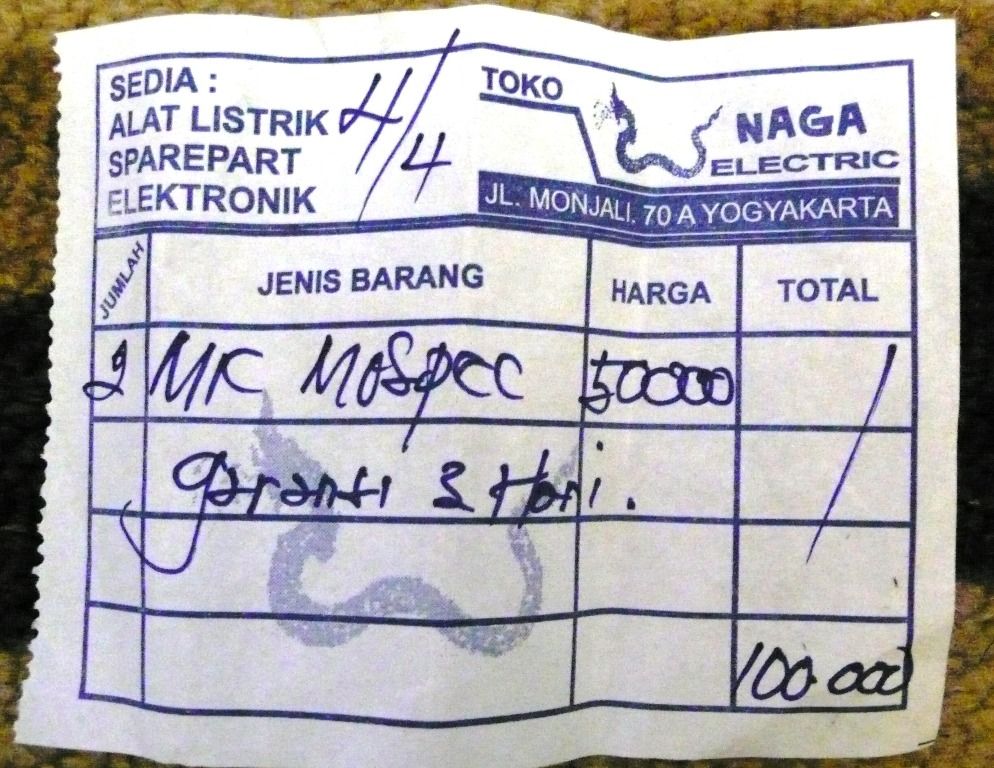 SEDIA :
ALAT LISTRIK
SPAREPART
ELEKTRONIK
4/4
TOKO
NAGA
ELECTRIC
JL. MONJALI. 70 A YOGYAKARTA
JUMLAH JENIS BARANG HARGA TOTAL
2 MK Mospec 50000
garansi 3 Hari.
100 000